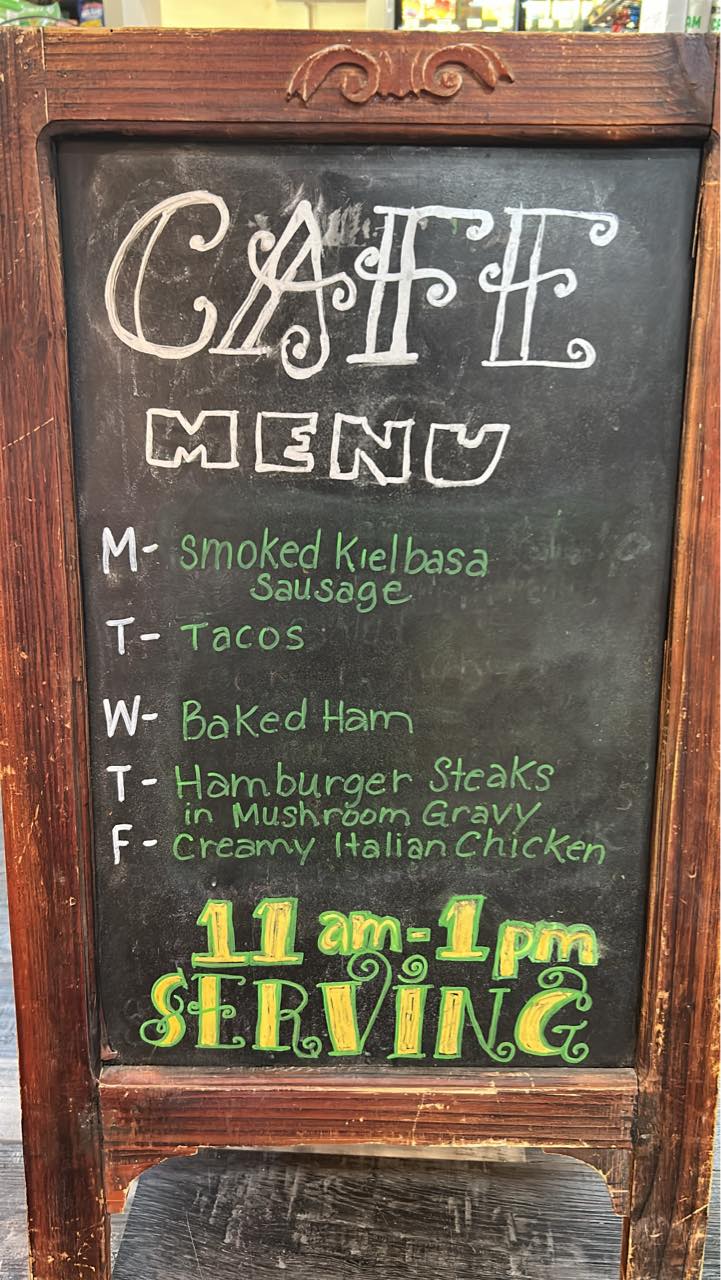 CAFE
MENU
M- Smoked Kielbasa
Sausage
T- Tacos
W- Baked Ham
T- Hamburger Steaks
in Mushroom Gravy
F- Creamy Italian Chicken
11 am-1 pm
SERVING